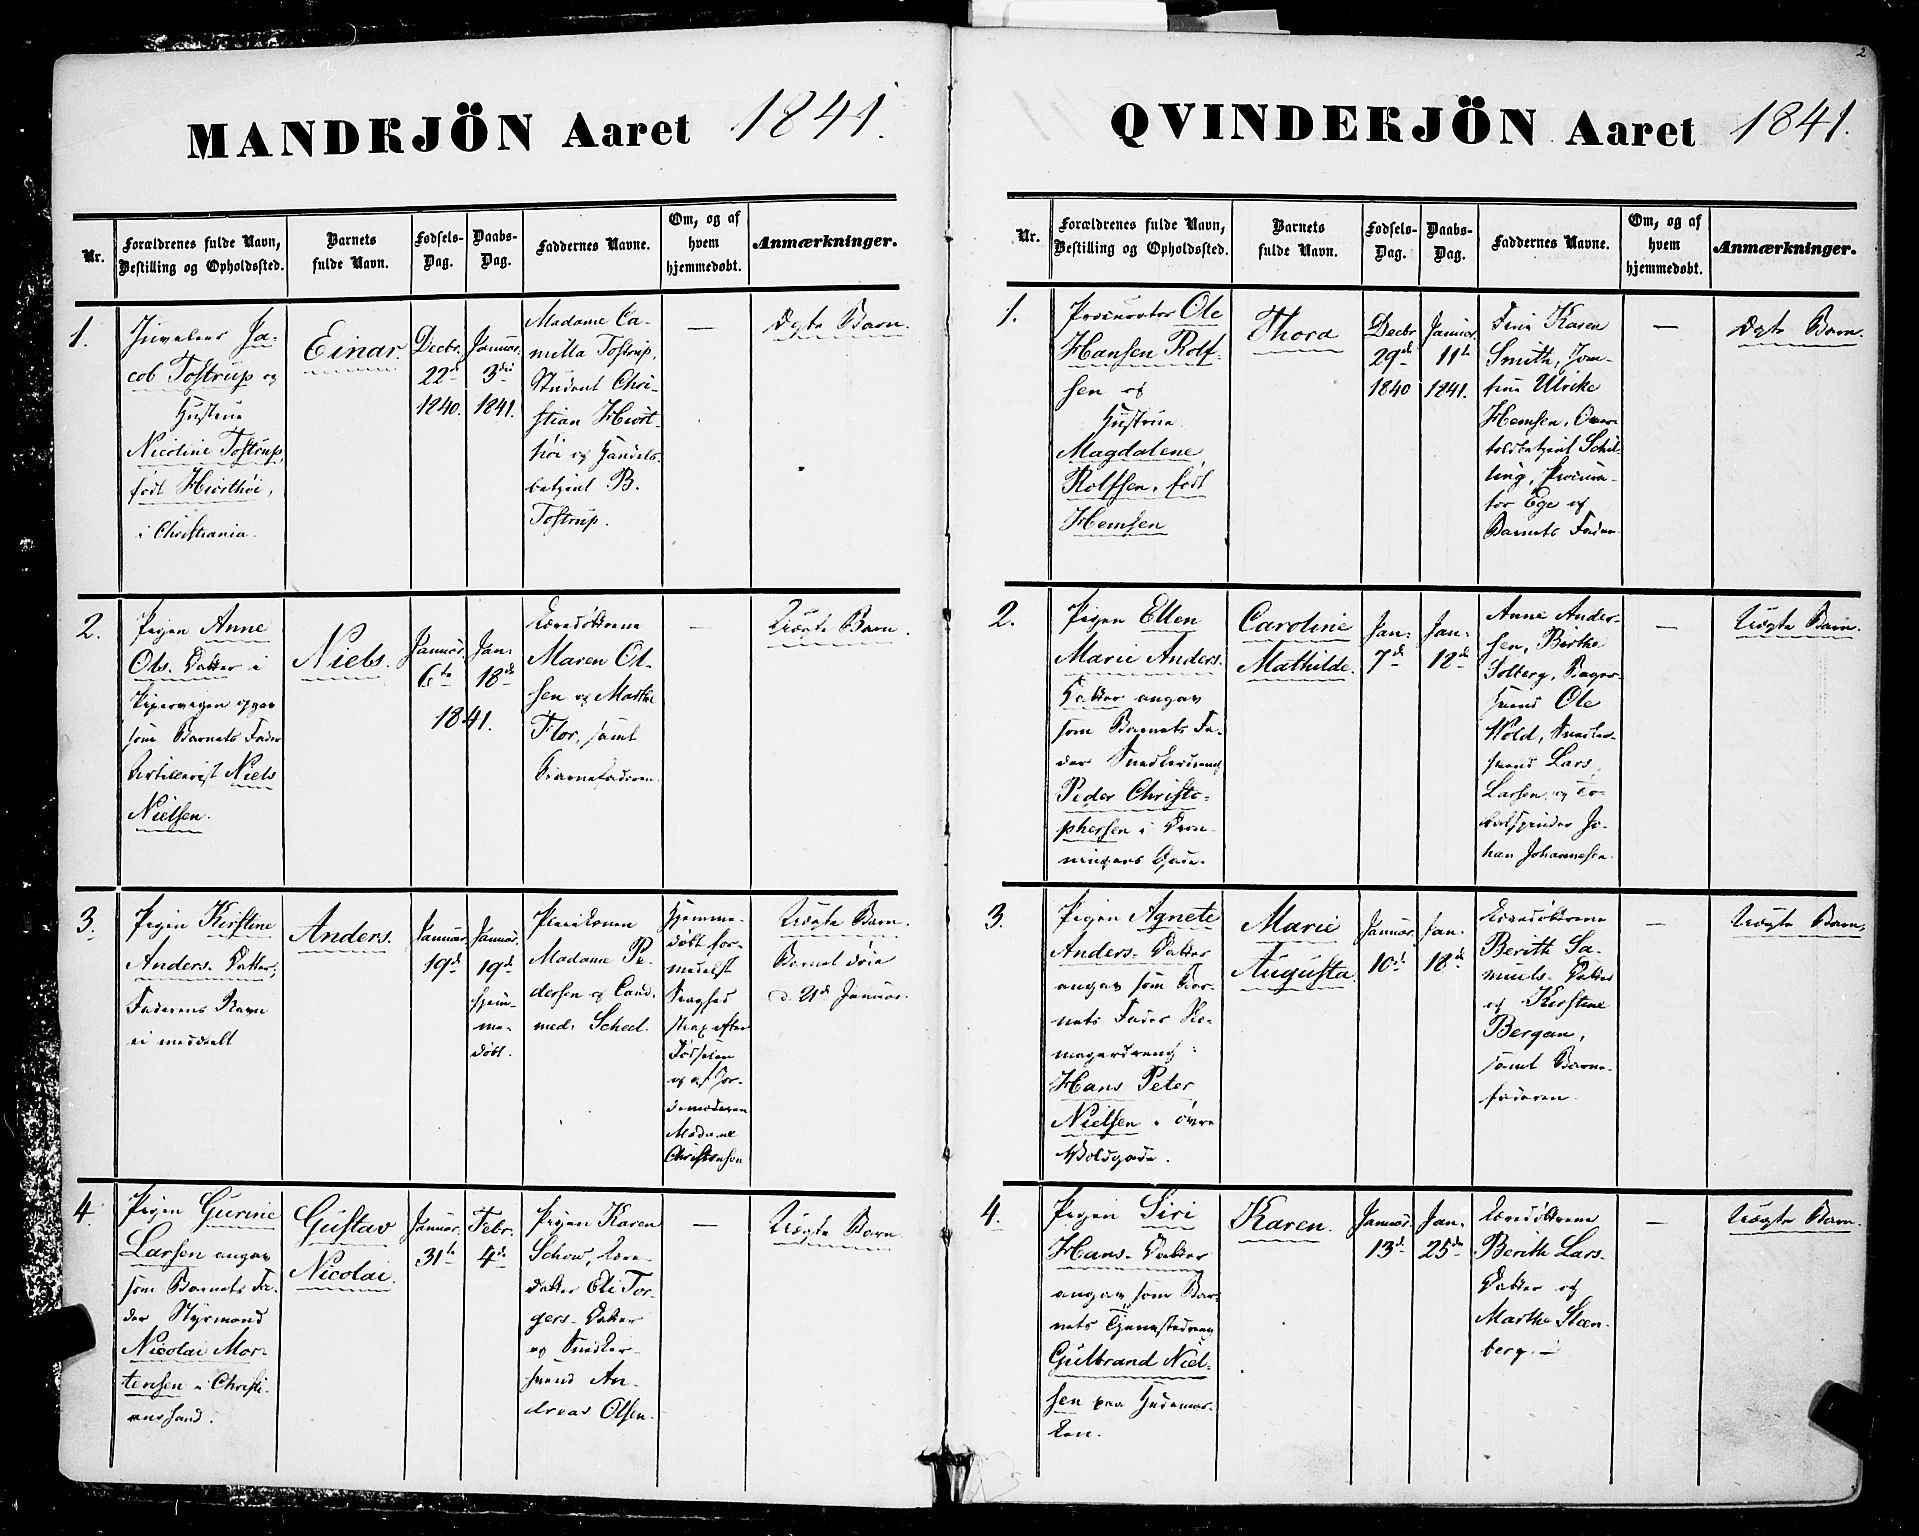 2
MANDKJÖN Aaret 1841.
Nr.
Forældrenes fulde Navn,
Bestilling og Opholdssted.
Barnets
fulde Navn.
Fødsels-
Dag.
Daabs-
Dag.
Faddernes Navne.
Om, og af
hvem
hjemmedøbt.
Anmærkninger.
1.
Juveleer Ja-
cob Tostrup og
Hustrue
Nicoline Tostrup,
født Hiorthøi,
i Christiania.
Einar.
Decbr.
22d
1840.
Januar.
3die
1841.
Madame Ca-
milla Tostrup,
Student Chri-
stian Hiort-
høi og Handels-
betjent B.
Tostrup.
—
Ægte Barn.
2.
Pigen Anne
Ols. Datter i
Pipervigen opgav
som Barnets Fader
Artillerist Niels
Nielsen.
Niels.
Januar.
6te
Jan.
18de
1841.
Maren Ol-
sen og Marthe
Flor, samt
Barnefaderen.
—
Uægte Barn.
3.
Pigen Kirstine
Anders. Datter,
Faderens Navn
ei meddeelt
Anders.
Januar.
19d
Januar.
19d
hjem-
me-
døbt.
Madame Pe-
dersen og Cand.
med. Scheel.
Hjemme-
døbt for-
medelst
Svaghed
strax efter
Fødselen
og af Jor-
demoderen
Madame
Christensen
Uægte Barn.
Barnet døde
d. 21d Januar.
4.
Pigen Gurine
Larsen angav
som Barnets Fa-
der Styrmand
Nicolai Mor-
tensen i Christi-
anssand.
Gustav
Nicolai.
Januar.
31te
Febr.
4de
Pigen Karen
Schou,
Datter Eli Tor-
gers. Datter
og Snedker-
svend An-
dreas Olsen.
—
Uægte Barn.
QVINDERKJÖN Aaret 1841.
Nr.
Forældrenes fulde Navn,
Bestilling og Opholdssted.
Barnets
fulde Navn.
Fødsels-
Dag.
Daabs-
Dag.
Faddernes Navne.
Om, og af
hvem
hjemmedøbt.
Anmærkninger.
1.
Procurator Ole
Hansen Rolf-
sen og
Hustrue
Magdalene
Rolfsen, født
Hemsen
Thora
Decbr
29de
1840
Januar.
11te
1841.
Frue Karen
Smith, Jom-
frue Ulrike
Hemsen, Over-
toldbetjent Schil-
ling, Procura-
tor Ege og
Barnets Fader
—
Ægte Barn.
2.
Pigen Ellen
Marie Anders.
Datter angav
som Barnets Fa-
der Snedkerdreng
Peder Christo-
phersen i Dron-
ningens Gade.
Caroline
Mathilde.
Jan-
7d
Jan-
18de
Anne Ander-
sen, Berthe
Solberg, Bager-
svend Ole
Wold,
svend Lars
Larsen, og To-
bakspinder Jo-
han Johannesen.
—
Uægte Barn.
3.
Pigen Agnete
Anders. Datter
angav som Bar-
nets Fader
magerdreng
Hans Peter
Nielsen i Øvre
Voldgade.
Marie
Augusta.
Januar.
10d
Jan.
18de
Berith Sa-
muels. Datter
og Kirstine
Bergan,
samt Barne-
faderen.
—
Uægte Barn.
4.
Pigen Siri
Hans. Datter
angav som Bar-
nets Tjenestedreng
Gulbrand Niel-
sen paa Hedemar-
ken.
Karen.
Januar.
13d
Jan.
25de
Berith Lars.
Datter og
Marthe Steen-
berg. —
—
Uægte Barn.